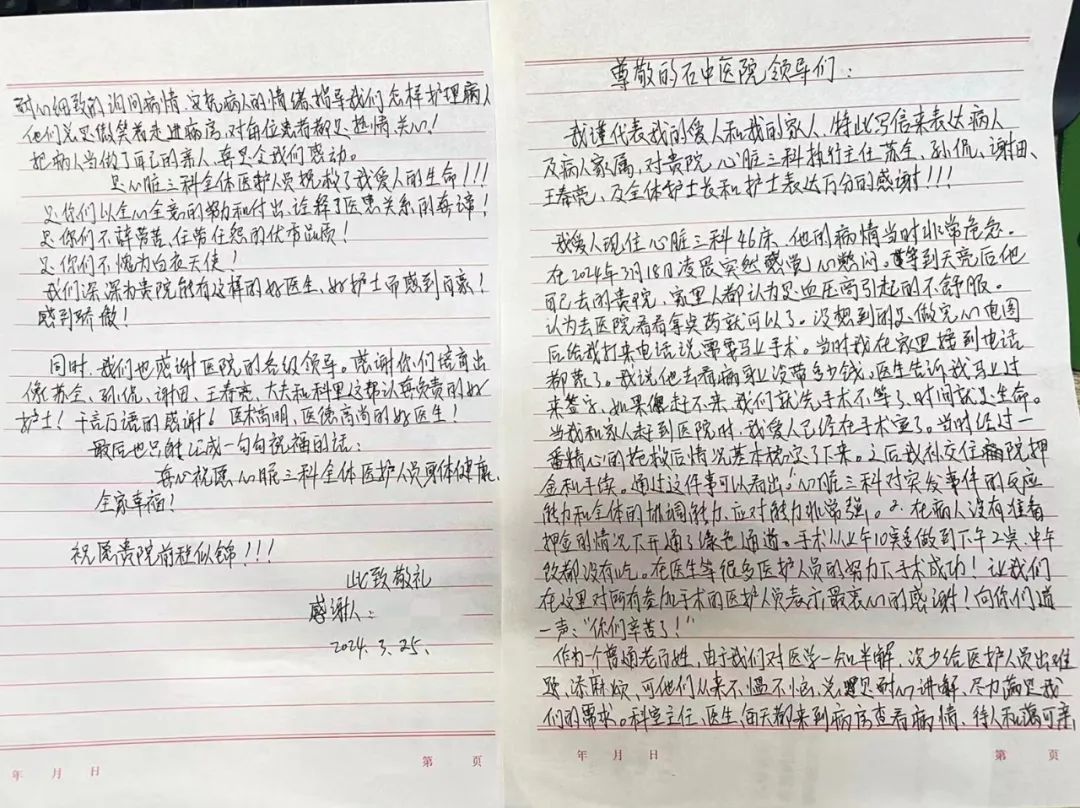 尊敬的石中医院领导们：
我谨代表我的爱人和我的家人，特此写信来表达病人
及病人家属，对贵院，心脏三科执行主任苏全、孙侃、谢田、
王春亮、及全体护士长和护士表达万分的感谢！！！
我爱人现住心脏三科46床、他的病情当时非常危急。
在2024年3月18日凌晨突然感觉心憋闷。等到天亮后他
自己去的贵院，家里人都认为是血压高引起的不舒服。
认为去医院看看拿点药就可以了。没想到的是做完心电图
后给我打来电话说需要马上手术。当时我在家里接到电话
都荒了。我说他去看病身上没带多少钱，医生告诉我马上过
来签字，如果赶不来，我们就先手术不等了，时间就是生命。
当我和家人赶到医院时，我爱人已经在手术室了。当时经过一
番精心的抢救后情况基本稳定了下来。之后我补交住院押
金和手续。通过这件事可以看出：心脏三科对突发事件的反应
能力和全体的协调能力、应对能力非常强。2.在病人没有准备
押金的情况下开通了绿色通道。手术从上午10点多做到下午2点，中午
饭都没有吃。在医生等很多医护人员的努力下手术成功！让我们
在这里对所有参加手术的医护人员表示最衷心的感谢！向你们道
一声：“你们辛苦了！”
作为一个普通老百姓，由于我们对医学一知半解，没少给医护人员出难
题、添麻烦，可他们从来不愠不恼，总是耐心讲解、尽力满足我
们的需求。科室主任、医生，每天都来到病房查看病情、待人和蔼可亲
年 月 日 第 页
耐心细致的询问病情，安抚病人的情绪，指导我们怎样护理病人
他们总是微笑着走进病房，对每位患者都是热情、关心！
把病人当做了自己的亲人，真是令我们感动。
是心脏三科全体医护人员挽救了我爱人的生命！！！
是你们以全心全意的努力和付出、诠释了医患关系的真谛！
是你们不辞劳苦、任劳任怨的优秀品质！
是你们不愧为白衣天使！
我们深深为贵院能有这样的好医生、好护士而感到自豪！
感到骄傲！
同时，我们也感谢医院的各级领导。感谢你们培育出
像苏全、孙侃、谢田、王春亮、大夫和科里这帮认真负责的好
护士！千言万语的感谢！医术高明，医德高尚的好医生！
最后也只能汇成一句句祝福的话：
真心祝愿心脏三科全体医护人员身体健康、
全家幸福！
祝愿贵院前程似锦！！！
此致敬礼
感谢人：
2024.3.25.
年 月 日 第 页